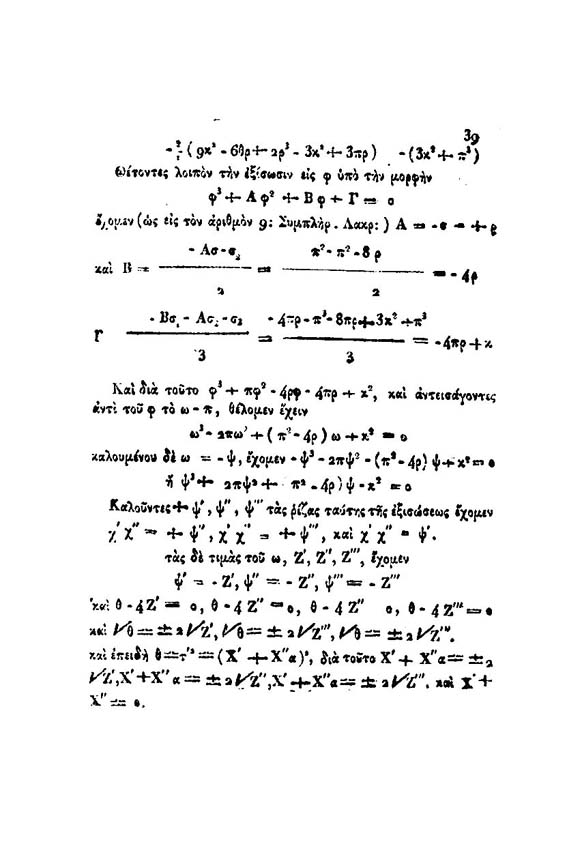 39
- 2/- ( 9κ² - 6θρ + 2ρ³ - 3κ² + 3πρ ) - (3κ² + π³)
Θέτοντες λοιπὸν τὴν ἐξίσωσιν εἰς φ ὑπὸ τὴν μορφὴν
φ³ + Αφ² + Βφ + Γ = 0
ἔχομεν (ὡς εἰς τὸν ἀριθμὸν 9: Συμπλήρ. Λακρ: ) Α = -σ = + ρ
καὶ Β = (- Ασ - σ₂)/2 = (π² - π² - 8ρ)/2 = - 4ρ
Γ (- Βσ₁ - Ασ₂ - σ₃)/3 = (- 4πρ - π³ - 8πρ + 3κ² + π³)/3 = - 4πρ + κ
Καὶ διὰ τοῦτο φ³ + πφ² - 4ρφ - 4πρ + κ², καὶ ἀντεισάγοντες
ἀντὶ τοῦ φ τὸ ω - π, θέλομεν ἔχειν
ω³ - 2πω² + ( π² - 4ρ ) ω + κ² = 0
καλουμένου δὲ ω = - ψ, ἔχομεν - ψ³ - 2πψ² - (π² - 4ρ) ψ + κ² = 0
ἢ ψ³ + 2πψ² + π² - 4ρ) ψ - κ² = 0
Καλοῦντες + ψ′, ψ″, ψ‴ τὰς ῥίζας ταύτης τῆς ἐξισώσεως ἔχομεν
χ′χ″ = + ψ″, χ′χ″ = + ψ‴, καὶ χ′χ″ = ψ′.
τὰς δὲ τιμὰς τοῦ ω, Ζ′, Ζ″, Ζ‴, ἔχομεν
ψ′ = - Ζ′, ψ″ = - Ζ″, ψ‴ = - Ζ‴
καὶ θ - 4Ζ′ = 0, θ - 4Ζ″ = 0, θ - 4Ζ″ 0, θ - 4Ζ‴ = 0
καὶ √θ = ± 2√Ζ′, √θ = ± 2√Ζ‴, √θ = ± 2√Ζ‴.
καὶ ἐπειδὴ θ = τ′² = (Χ′ + Χ″α)², διὰ τοῦτο Χ′ + Χ″α = ± 2
√Ζ′, Χ′ + Χ″α = ± 2√Ζ″, Χ′ + Χ″α = ± 2√Ζ‴. καὶ Χ′ +
Χ″ = 0.